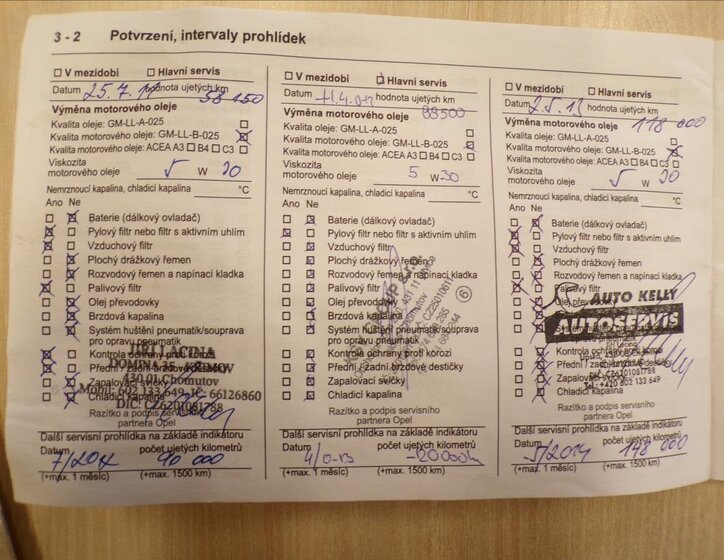 3 - 2 Potvrzení, intervaly prohlídek
V mezidobí Hlavní servis
Datum 25.7. hodnota ujetých km
58 150
Výměna motorového oleje
Kvalita oleje: GM-LL-A-025
Kvalita motorového oleje: GM-LL-B-025
Kvalita motorového oleje: ACEA A3 B4 C3
Viskozita
motorového oleje 5 W 30
Nemrznoucí kapalina, chladicí kapalina °C
Ano Ne
Baterie (dálkový ovladač)
Pylový filtr nebo filtr s aktivním uhlím
Vzduchový filtr
Plochý drážkový řemen
Rozvodový řemen a napínací kladka
Palivový filtr
Olej převodovky
Brzdová kapalina
Systém huštění pneumatik/souprava
pro opravu pneumatik
Kontrola ochrany proti korozi
Přední / zadní brzdové destičky
Zapalovací svíčky
Chladicí kapalina
430 01 Chomutov
Mobil: 602 133 649 IČ: 66126860
DIČ: CZ6201081788
Razítko a podpis servisního
partnera Opel
Další servisní prohlídka na základě indikátoru
Datum počet ujetých kilometrů
90 000
(+max. 1 měsíc) (+max. 1500 km)
V mezidobí Hlavní servis
Datum hodnota ujetých km
Výměna motorového oleje 88500
Kvalita oleje: GM-LL-A-025
Kvalita motorového oleje: GM-LL-B-025
Kvalita motorového oleje: ACEA A3 B4 C3
Viskozita
motorového oleje 5 W 30
Nemrznoucí kapalina, chladicí kapalina °C
Ano Ne
Baterie (dálkový ovladač)
Pylový filtr nebo filtr s aktivním uhlím
Vzduchový filtr
Plochý drážkový řemen
Rozvodový řemen a napínací kladka
Palivový filtr
Olej převodovky
Brzdová kapalina
Systém huštění pneumatik/souprava
pro opravu pneumatik
Kontrola ochrany proti korozi
Přední / zadní brzdové destičky
Zapalovací svíčky
Chladicí kapalina
Razítko a podpis servisního
partnera Opel
Další servisní prohlídka na základě indikátoru
Datum počet ujetých kilometrů
(+max. 1 měsíc) (+max. 1500 km)
V mezidobí Hlavní servis
Datum 2.5.13 hodnota ujetých km
Výměna motorového oleje 118 000
Kvalita oleje: GM-LL-A-025
Kvalita motorového oleje: GM-LL-B-025
Kvalita motorového oleje: ACEA A3 B4 C3
Viskozita
motorového oleje 5 W 30
Nemrznoucí kapalina, chladicí kapalina °C
Ano Ne
Baterie (dálkový ovladač)
Pylový filtr nebo filtr s aktivním uhlím
Vzduchový filtr
Plochý drážkový řemen
Rozvodový řemen a napínací kladka
Palivový filtr
AUTO KELLY
Jiří Lacina
DIČ: CZ6201081788
Tel.: +420 602 133 649
Zapalovací
Chladicí kapalina
Razítko a podpis servisního
partnera Opel
Další servisní prohlídka na základě indikátoru
Datum počet ujetých kilometrů
5/2014 148 000
(+max. 1 měsíc) (+max. 1500 km)